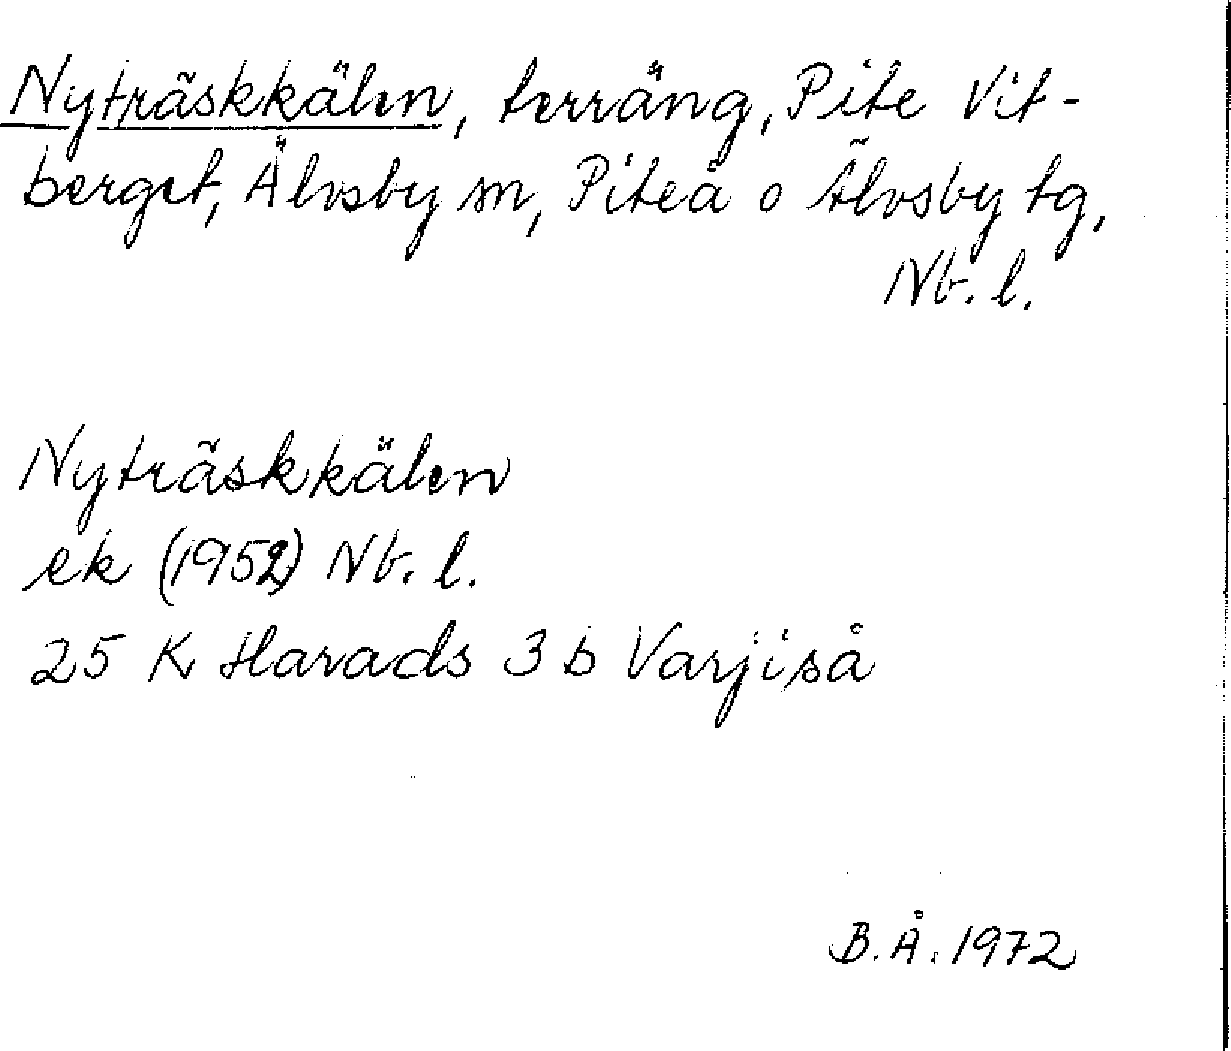 Nyträskkälen, terräng, Pite Vit-
berget, Älvsby sn, Piteå o Älvsby tg,
Nb. l.
Nyträskkälen
ek (1952) Nb. l.
25 K Harads 3 b Varjiså
B. Å. 1972